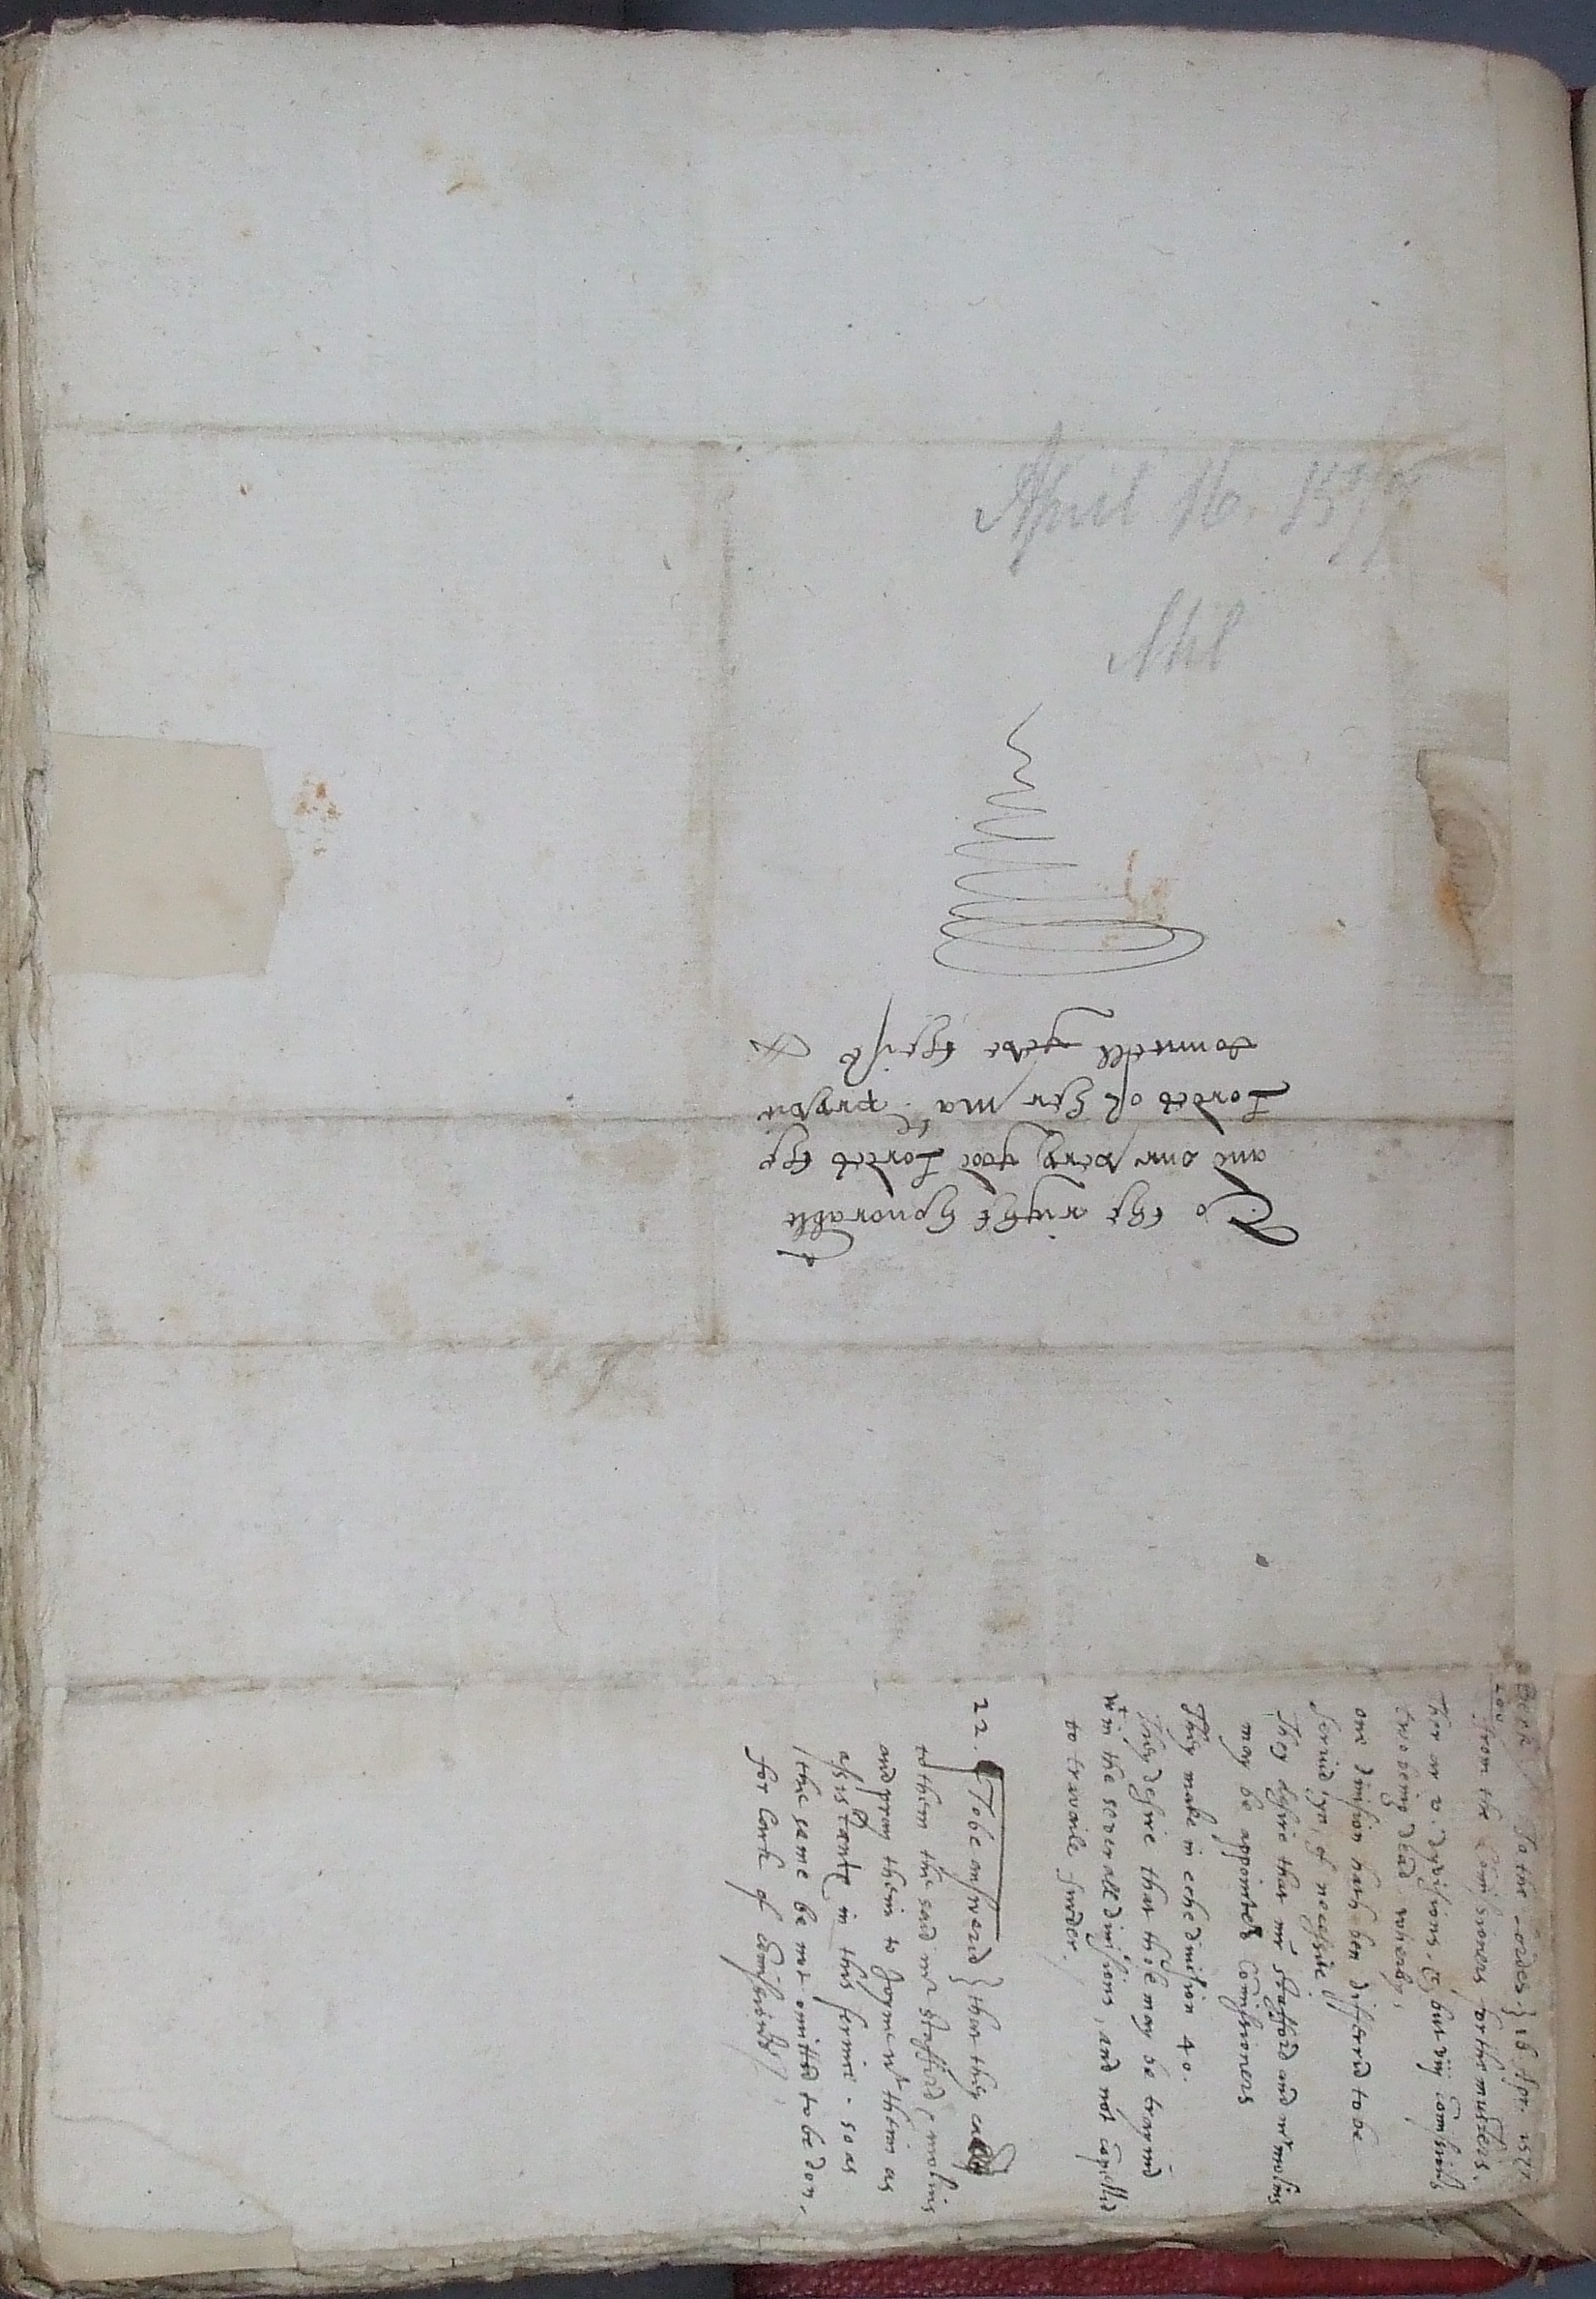 April 16. 1577
To the right honorable
and our very good Lordes the
Lordes of her ma.tes pryvie
counsell yeve theise
To the Lordes. } 16 Apr. 1577.
from the Comissioners for the musters.
Ther ar v. divisions, & but viij Comissioners
two being dead wherby,
one division hath ben differred to be
servid upon necessite
They desire that mr Stafford and mr molins
may be appointed Comissioners
They make in eche division 40.
They desire that thos may be trayned
wtin the severall divisions, and not compellid
to travaile furder.
22. To be answerid } that they call
to them the said mr Stafford, molins
and pray them to joyne wt them as
assistants in this service. so as
the same be not omitted to be don,
for lack of Comissioners